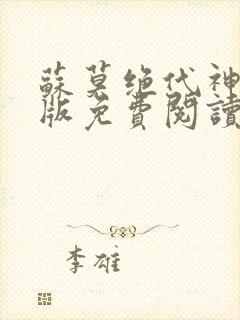 蘇莫绝代神
版免費閱讀
李雄